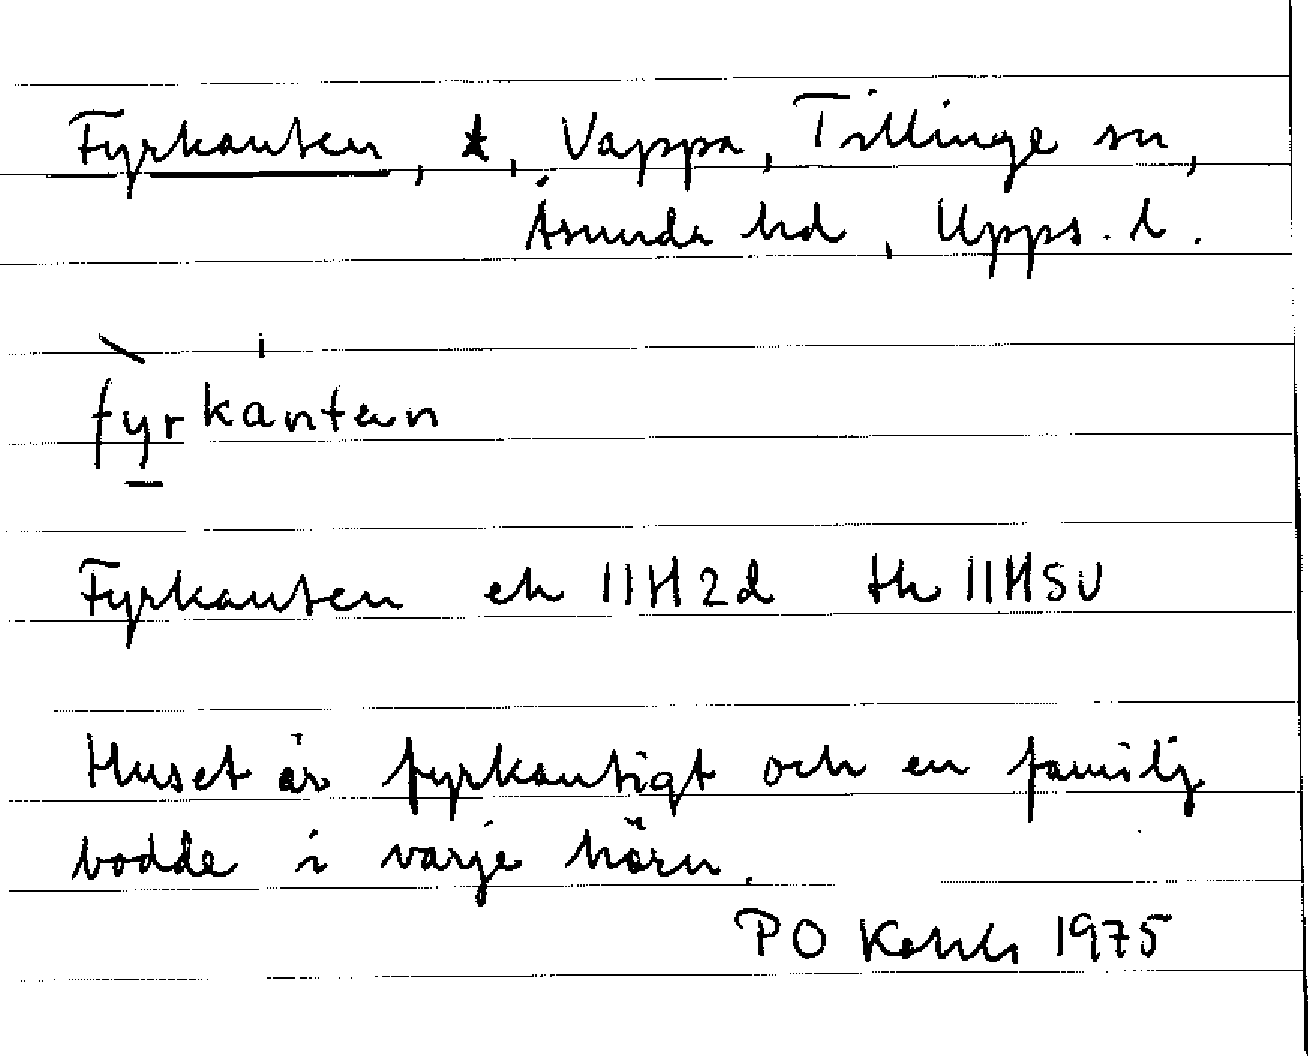 Fyrkanten, t, Vappa, Tillinge sn,
Åsunda hd, Upps. l.
fyrkantən
Fyrkanten ek 11H2d tk 11HSV
Huset är fyrkantigt och en familj
bodde i varje hörn.
PO 1975